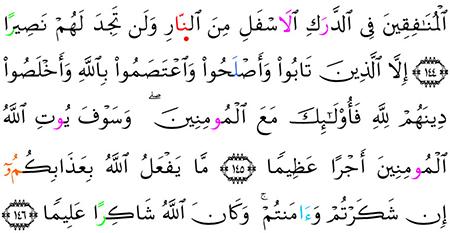 اَ۬لْمُنَٰفِقِينَ فِي اِ۬لدَّرَكِ اِ۬لَاسْفَلِ مِنَ اَ۬لنّ۪ارِ وَلَن تَجِدَ لَهُمْ نَصِيرًا
﴿١٤٤﴾ إِلَّا اَ۬لَّذِينَ تَابُواْ وَأَصْلَحُواْ وَاعْتَصَمُواْ بِاللَّهِ وَأَخْلَصُواْ
دِينَهُمْ لِلَّهِ فَأُوْلَٰٓئِكَ مَعَ اَ۬لْمُومِنِينَۖ وَسَوْفَ يُوتِ اِ۬للَّهُ
اُ۬لْمُومِنِينَ أَجْرًا عَظِيمًا ﴿١٤٥﴾ مَّا يَفْعَلُ اُ۬للَّهُ بِعَذَابِكُمُۥٓ
إِن شَكَرْتُمْ وَءَامَنتُمْۚ وَكَانَ اَ۬للَّهُ شَاكِرًا عَلِيمًا ﴿١٤٦﴾